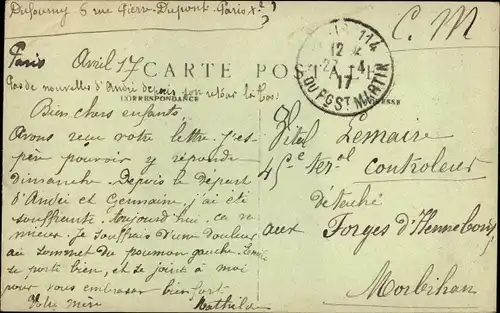 Dufourny 5 rue Pierre-Dupont-Paris X-e
C. M
PARIS 114
12
27 4
17
DU FG ST MARTIN
Paris Avril 17
CARTE POSTALE
Pas de nouvelles d'André depuis son retour là bas
CORRESPONDANCE
ADRESSE
Bien chers enfants
Avons reçu votre lettre. J'es-
père pouvoir y répondre
dimanche. Depuis le départ
d'André et Germaine, j'ai été
souffrante. Aujourd'hui, ça va
mieux. Je souffrais d'une douleur
au sommet du poumon gauche.
se porte bien, et se joint à moi
pour vous embrasser bien fort
Votre mère Mathilde
Vital Lemaire
controleur
détaché
aux Forges d'Hennebont
Morbihan